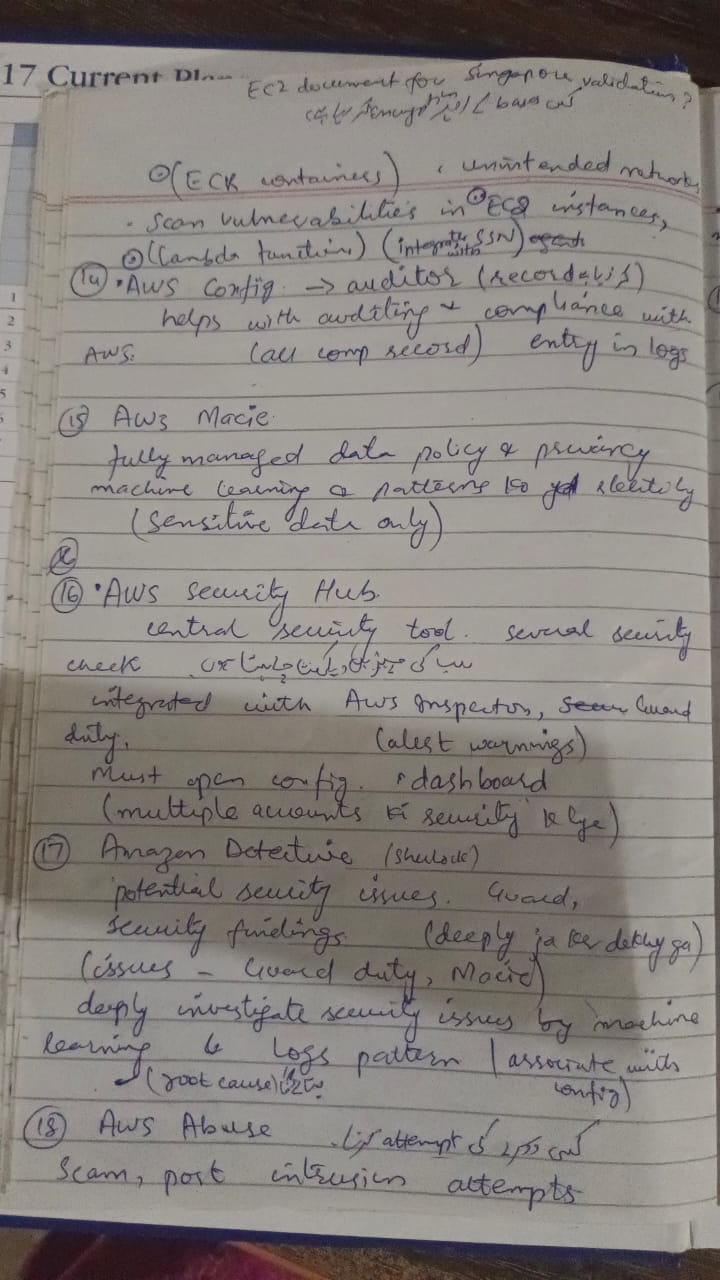 17 Current
EC2 document for Singapore validation?
base
(ECR containers) , unintended network
- Scan vulnerabilities in EC2 instances,
(Lambda functions) (integrate with SSN) agents
14 • AWS Config → auditor (record
helps with auditing & compliance with
AWS. (all comp record) entry in logs
15 AWS Macie
fully managed data policy & privacy
machine learning & patterns ko
(Sensitive data only)
16 • AWS Security Hub.
central security tool. several security
check سب کی
integrated with AWS Inspector, Guard
duty. (alert warnings)
Must open config. • dashboard
(multiple accounts ki security k lye)
17 Amazon Detective (Sherlock)
potential security issues. Guard,
Security findings (deeply ja ker dekhy ga)
(issues - Guard duty, Macie)
deeply investigate security issues by machine
learning & logs pattern (associate with
(root cause) بتائے گا config)
18 AWS Abuse attempt کی
Scam, post intrusion attempts